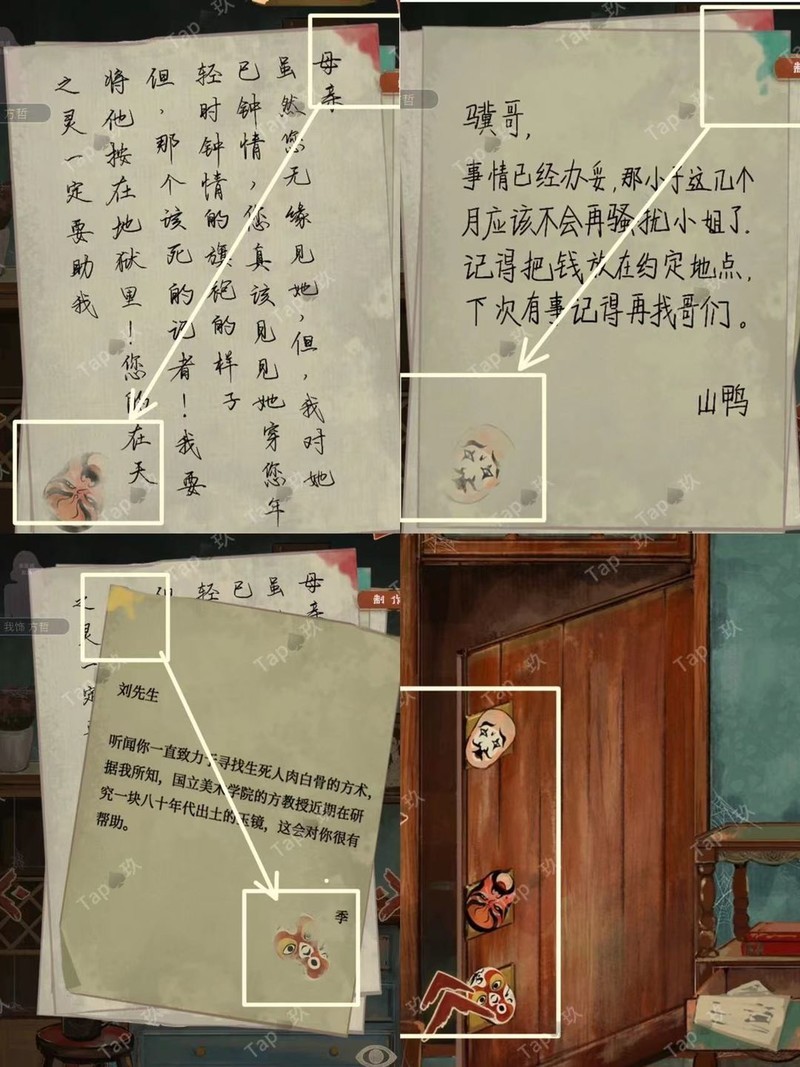 母亲
虽然您无缘见她，但，我对她
已钟情，您真该见见她穿您年
轻时钟情的旗袍的样子
但，那个该死的记者！我要
将他按在地狱里！您的在天
之灵一定要助我
方哲
骥哥，
事情已经办妥，那小子这几个
月应该不会再骚扰小姐了.
记得把钱放在约定地点，
下次有事记得再找哥们。
山鸭
母亲
虽
已
轻
之灵一定
我饰 方哲
制 作
刘先生
听闻你一直致力于寻找生死人肉白骨的方术，
据我所知，国立美术学院的方教授近期在研
究一块八十年代出土的玉镜，这会对你很有
帮助。
季
Tap 玖